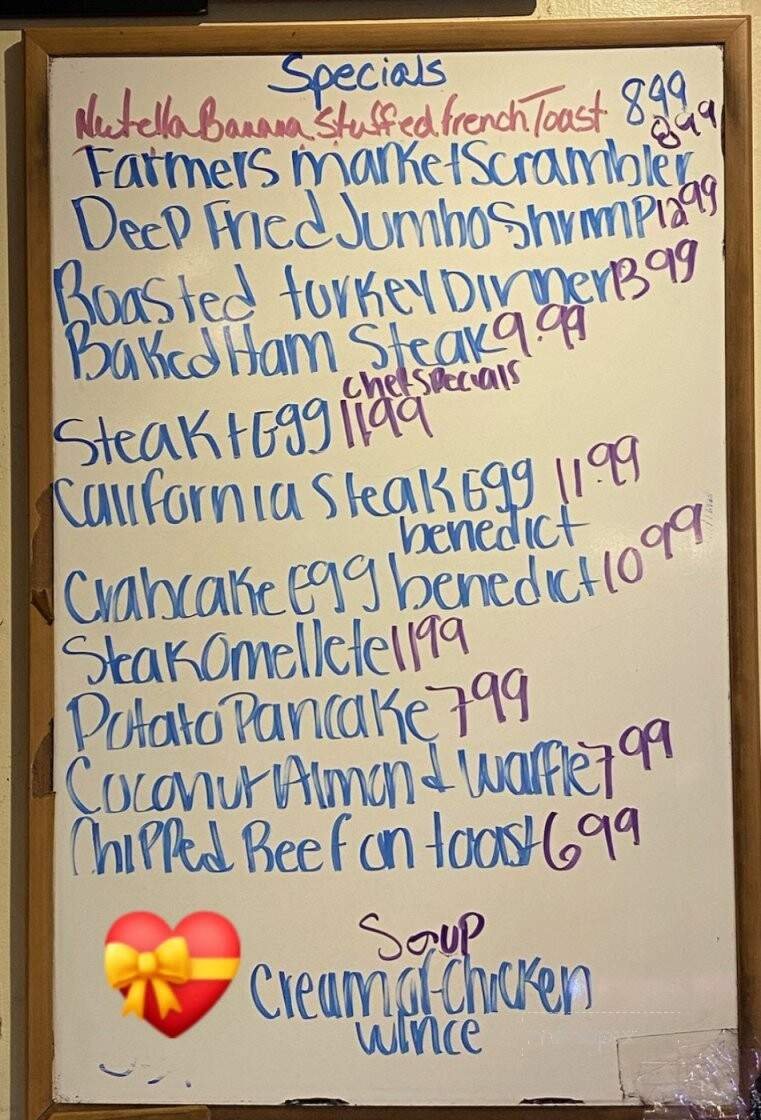 Specials
Nutella Banana Stuffed french Toast 899
Farmers market Scrambler 899
Deep Fried Jumbo Shrimp 1299
Roasted turkey Dinner 1399
Baked Ham Steak 9.99
chef specials
Steak + Egg 1199
California Steak Egg 11.99
benedict
Crabcake Egg benedict 1099
Steak Omellete 1199
Potato Pancake 799
Coconut Almond Waffle 799
Chipped Beef on toast 699
Soup
Cream of Chicken
w/rice